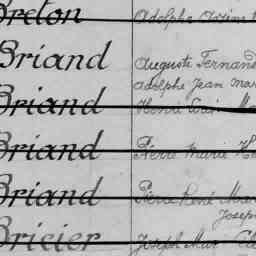 Breton Adolphe
Briand Auguste Fernand
Adolphe Jean Mar
Briand Henri
Briand Pierre Marie
Briand Pierre René Mar
Joseph
Bricier Joseph Mar